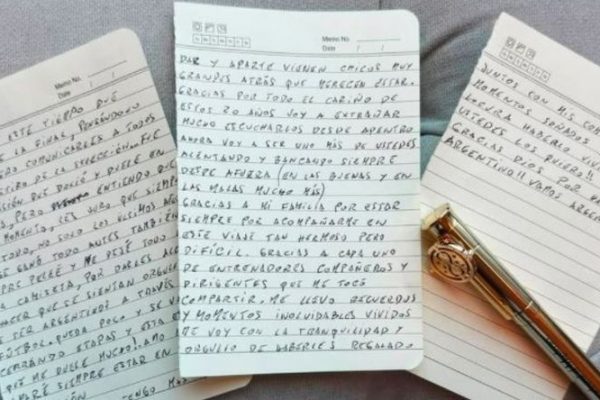 Memo No.
Date / /
ESTE TIEMPO QUE
LA FINAL PENSANDO
COMUNICARLES A TODOS
DE LA SELECCION. FUE
QUE DOLIO Y DUELE EN
PERO ENTIENDO QUE
LES JURO QUE
TODO, NO SOLO LOS ULTIMOS
SE GANO TODO ANTES TAMBIEN
PELEE Y ME DEJE TODO
CAMISETA, POR DARLES
QUE SE SIENTAN
SER ARGENTINOS A TRAVES
FUTBOL. QUEDA POCO Y SE
CERRANDO ETAPAS Y ESTA
QUE ME DUELE MUCHO! AMO
SIEMPRE ESTAR EN
TENGO
Memo No.
Date / /
DAR Y APARTE VIENEN CHICOS MUY
GRANDES ATRÁS QUE MERECEN ESTAR.
GRACIAS POR TODO EL CARIÑO DE
ESTOS 20 AÑOS VOY A EXTRAÑAR
MUCHO ESCUCHARLOS DESDE ADENTRO
AHORA VOY A SER UNO MAS DE USTEDES
ALENTANDO Y BANCANDO SIEMPRE
DESDE AFUERA (EN LAS BUENAS Y EN
LAS MALAS MUCHO MÁS)
GRACIAS A MI FAMILIA POR ESTAR
SIEMPRE POR ACOMPAÑARME EN
ESTE VIAJE TAN HERMOSO PERO
DIFÍCIL. GRACIAS A CADA UNO
DE ENTRENADORES COMPAÑEROS Y
DIRIGENTES QUE ME TOCÓ
COMPARTIR. ME LLEVO RECUERDOS
Y MOMENTOS INOLVIDABLES VIVIDOS
ME VOY CON LA TRANQUILIDAD Y
ORGULLO DE HABERLES REGALADO
JUNTOS CON MIS
MOMENTOS SOÑADOS
LOCURA HABERLO
USTEDES LOS QUIERO!!
GRACIAS DIOS POR
ARGENTINO!! VAMOS